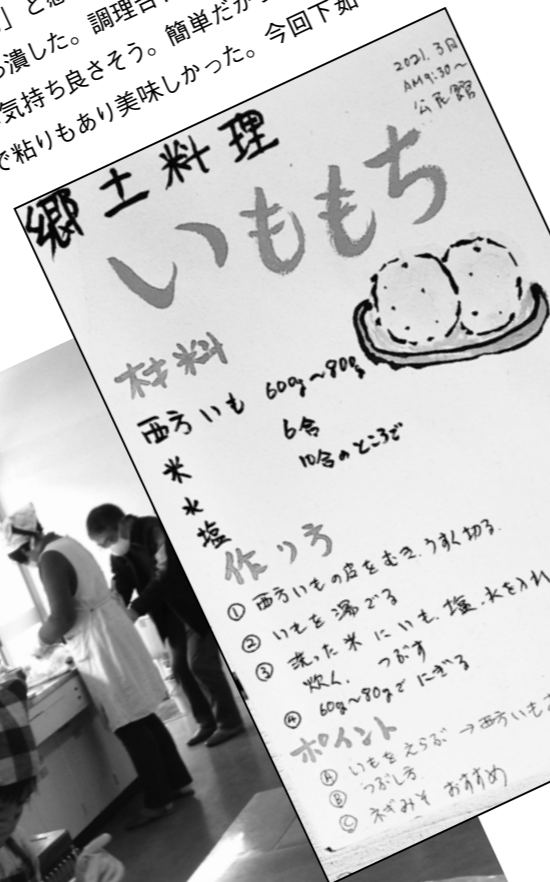 」と感
潰した。調理台
気持ち良さそう。簡単だか
で粘りもあり美味しかった。今回下如
2021.3月
AM9:30〜
公民館
郷土料理
いももち
材料
西方いも 600g〜800g
米 6合
水 10合のところで
塩
作り方
① 西方いもの皮をむき、うすく切る。
② いもを湯でる
③ 洗った米にいも、塩、水を入れ
炊く。 つぶす
④ 60g〜80gでにぎる
ポイント
Ⓐ いもをえらぶ →西方いも
Ⓑ つぶし方
Ⓒ ネギみそ おすすめ